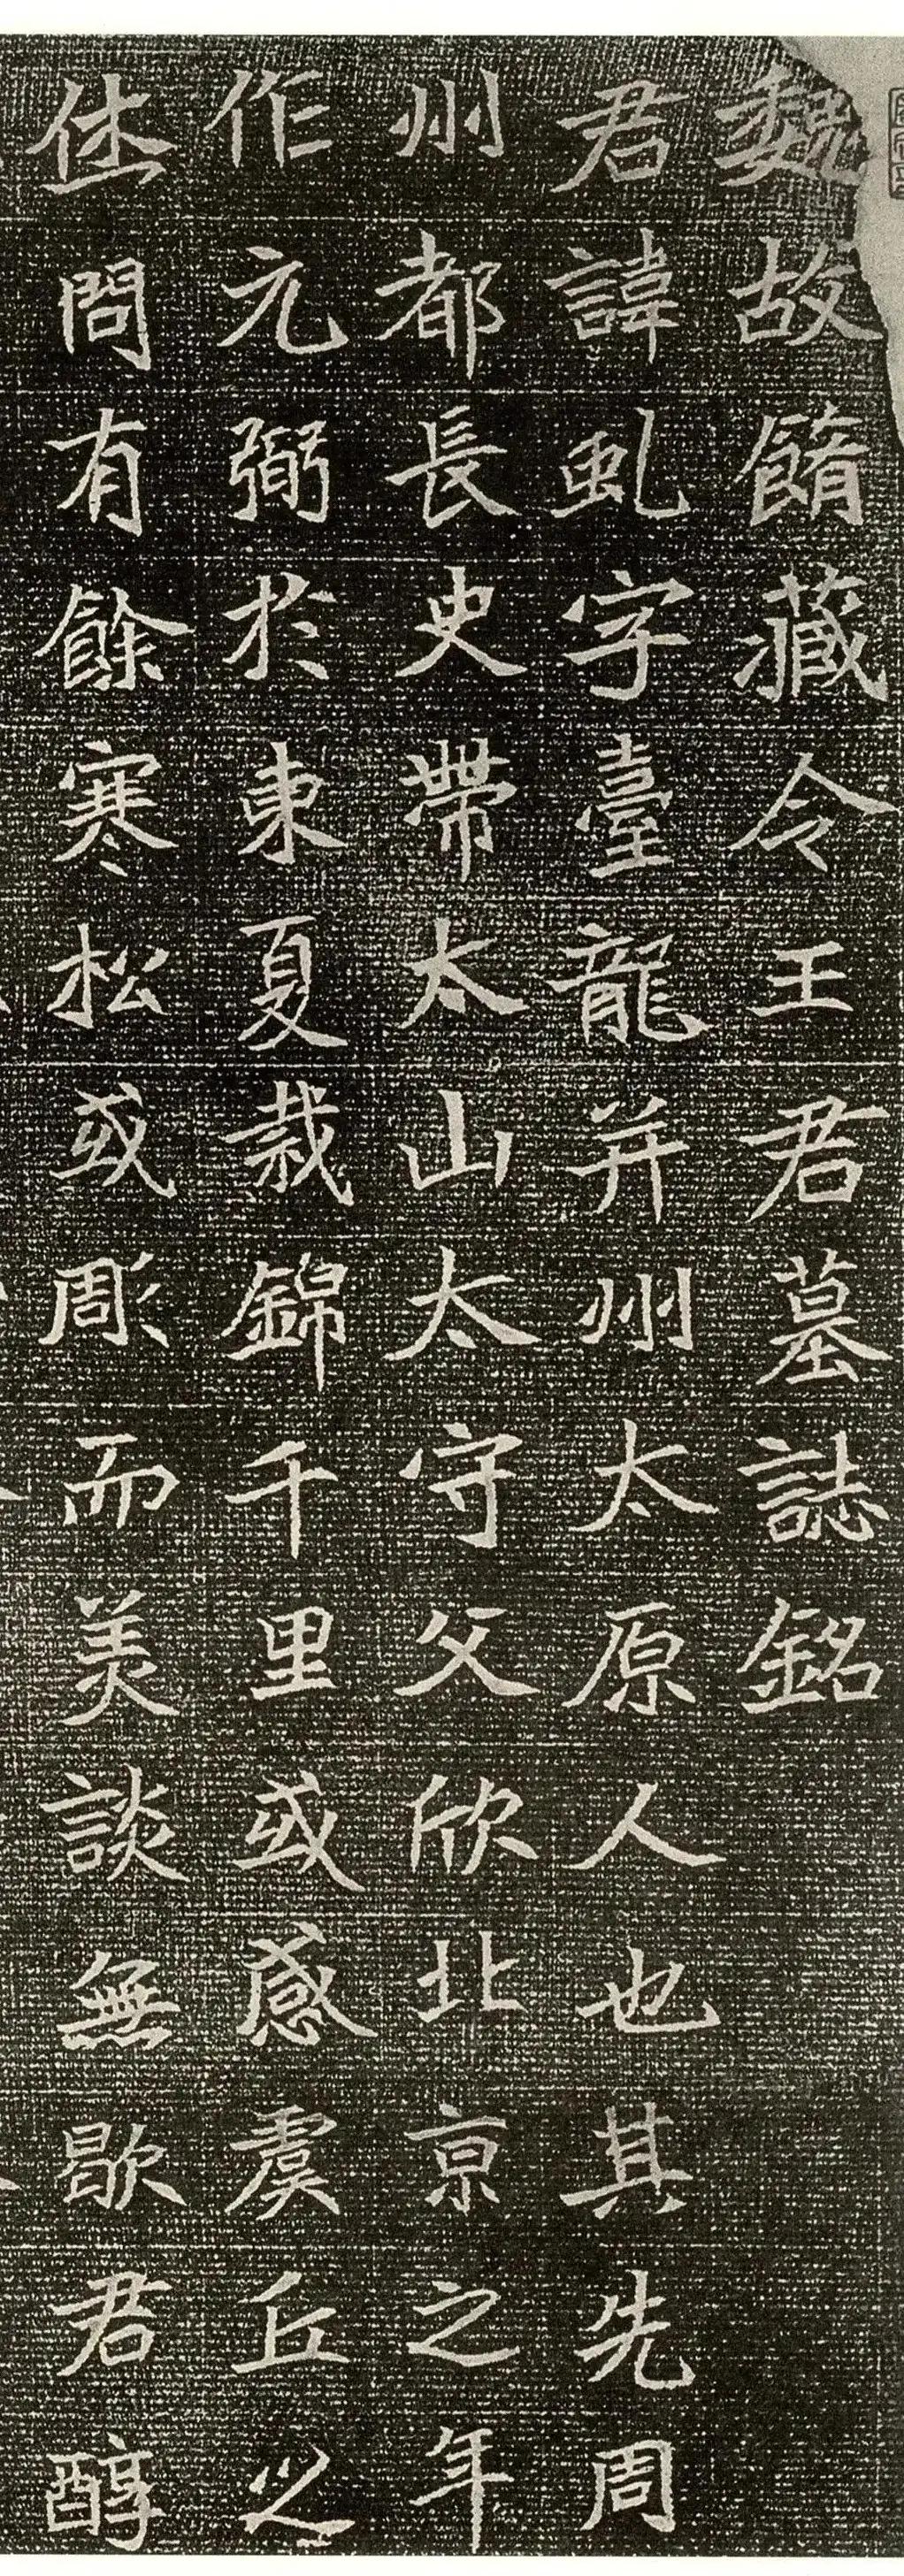 魏故脩藏令王君墓誌銘
君諱虬字臺龍并州太原人也其先周
州都長史帶太山太守父欣北京之年
作元弼於東夏裁錦千里或感虞丘之
休問有餘寒松或彫而美談無歇君醇